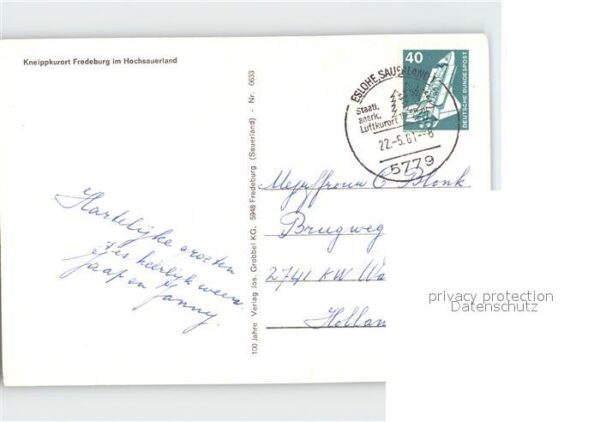 Kneippkurort Fredeburg im Hochsauerland
40
DEUTSCHE BUNDESPOST
ESLOHE, SAUERLAND
Staatl.
anerk.
Luftkurort
22.-5.81--8
5779
100 Jahre Verlag Jos. Grobbel KG. 5948 Fredeburg (Sauerland) - Nr. 6633
Hartelijke groeten
het is heerlijk weer.
Jaap en Janny.
Mejuffrouw C Blonk
Brugweg
2741 KW Wa
Hollan
privacy protection
Datenschutz